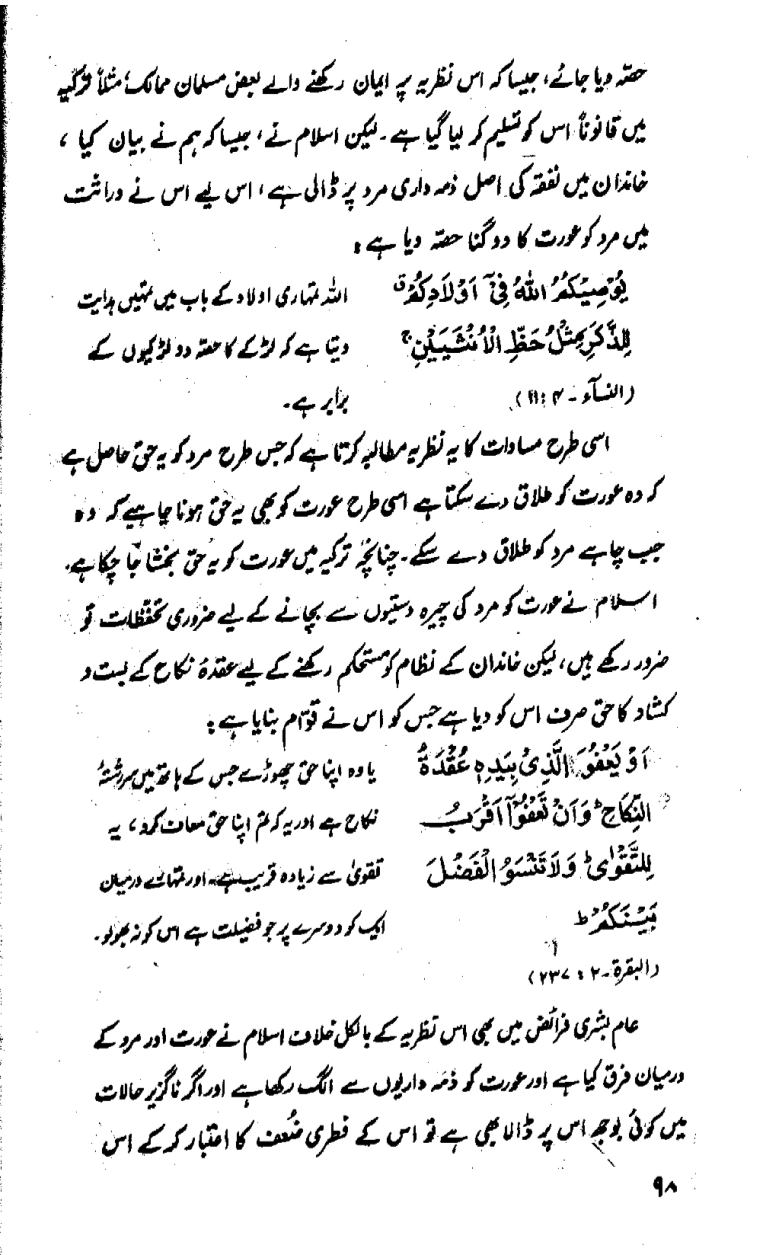 حصہ دیا جائے، جیسا کہ اس نظریہ پر ایمان رکھنے والے بعض مسلمان ممالک، مثلاً ترکیہ
میں قانوناً اس کو تسلیم کر لیا گیا ہے۔ لیکن اسلام نے، جیسا کہ ہم نے بیان کیا،
خاندان میں نفقہ کی اصل ذمہ داری مرد پر ڈالی ہے، اس لیے اس نے وراثت
میں مرد کو عورت کا دوگنا حصہ دیا ہے:
یُوْصِیْکُمُ اللّٰهُ فِیْٓ اَوْلَادِکُمْ ق
لِلذَّکَرِ مِثْلُ حَظِّ الْاُنْثَیَیْنِ ج
(النسآء - ۴: ۱۱)
اللہ تمہاری اولاد کے باب میں تمہیں ہدایت
دیتا ہے کہ لڑکے کا حصہ دو لڑکیوں کے
برابر ہے۔
اسی طرح مساوات کا یہ نظریہ مطالبہ کرتا ہے کہ جس طرح مرد کو یہ حق حاصل ہے
کہ وہ عورت کو طلاق دے سکتا ہے اسی طرح عورت کو بھی یہ حق ہونا چاہیے کہ وہ
جب چاہے مرد کو طلاق دے سکے۔ چنانچہ ترکیہ میں عورت کو یہ حق بخشا جا چکا ہے۔
اسلام نے عورت کو مرد کی چیرہ دستیوں سے بچانے کے لیے ضروری تحفظات تو
ضرور رکھے ہیں، لیکن خاندان کے نظام کو مستحکم رکھنے کے لیے عقدۂ نکاح کے بست و
کشاد کا حق صرف اس کو دیا ہے جس کو اس نے قوّام بنایا ہے:
اَوْ یَعْفُوَا الَّذِیْ بِیَدِهٖ عُقْدَةُ
النِّکَاحِ ط وَاَنْ تَعْفُوْٓا اَقْرَبُ
لِلتَّقْوٰی ط وَلَا تَنْسَوُا الْفَضْلَ
بَیْنَکُمْ ط
(البقرۃ - ۲: ۲۳۷)
یا وہ اپنا حق چھوڑے جس کے ہاتھ میں سررشتۂ
نکاح ہے اور یہ کہ تم اپنا حق معاف کرو، یہ
تقویٰ سے زیادہ قریب ہے۔ اور تمہارے درمیان
ایک کو دوسرے پر جو فضیلت ہے اس کو نہ بھولو۔
عام بشری فرائض میں بھی اس نظریہ کے بالکل خلاف اسلام نے عورت اور مرد کے
درمیان فرق کیا ہے اور عورت کو ذمہ داریوں سے الگ رکھا ہے اور اگر ناگزیر حالات
میں کوئی بوجھ اس پر ڈالا بھی ہے تو اس کے فطری ضُعف کا اعتبار کر کے اس
۹۸